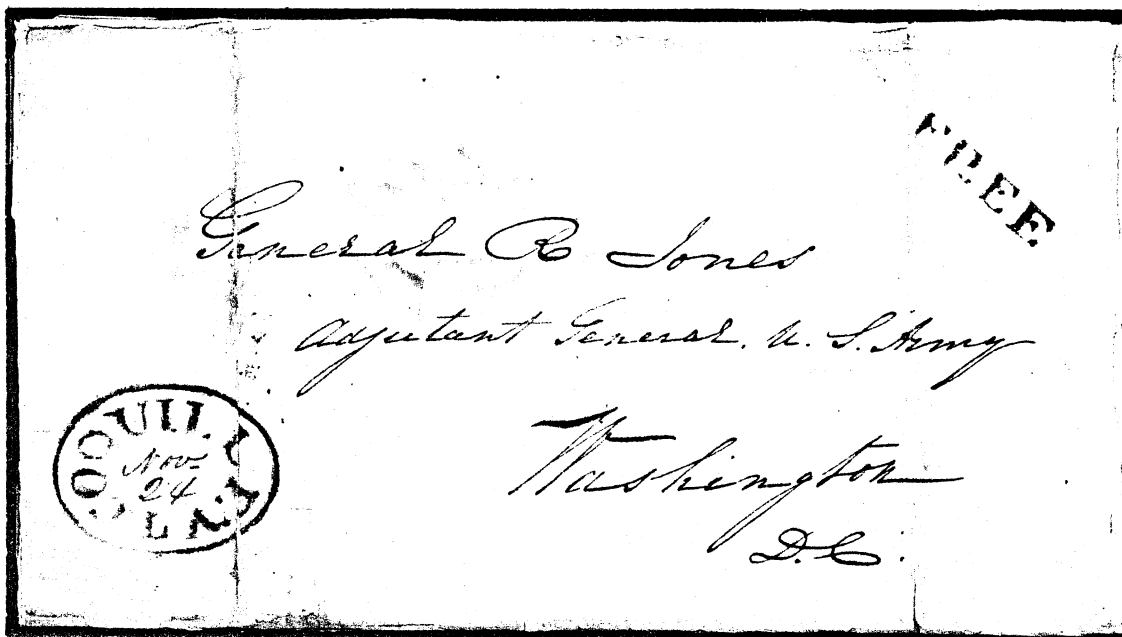 FREE
General R Jones
Adjutant General. U. S. Army
Washington
D. C.
COQUILLE
Nov
24